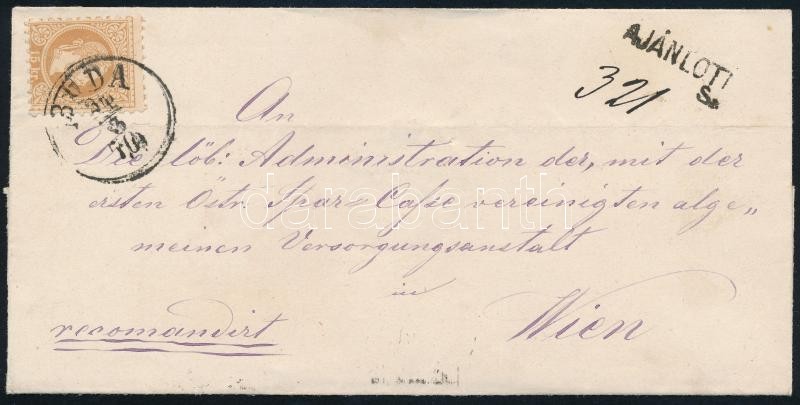 15 kr
BUDA
3
70
AJÁNLOTT
S:
321
An
Die löb: Administration der, mit der
ersten Östr. Spar=Casse vereinigten alge„
meinen Versorgungsanstalt
in
Wien
recomandirt
darabanth